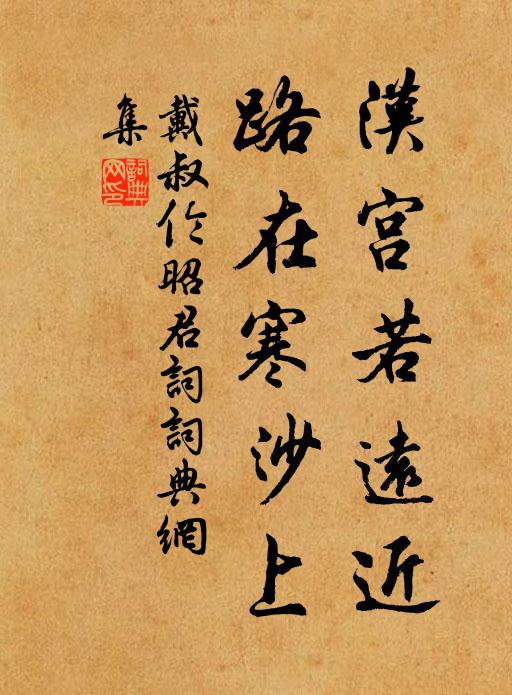 漢宮若遠近
路在寒沙上
戴叔伦昭君詞詞典網
集
詞典
网印